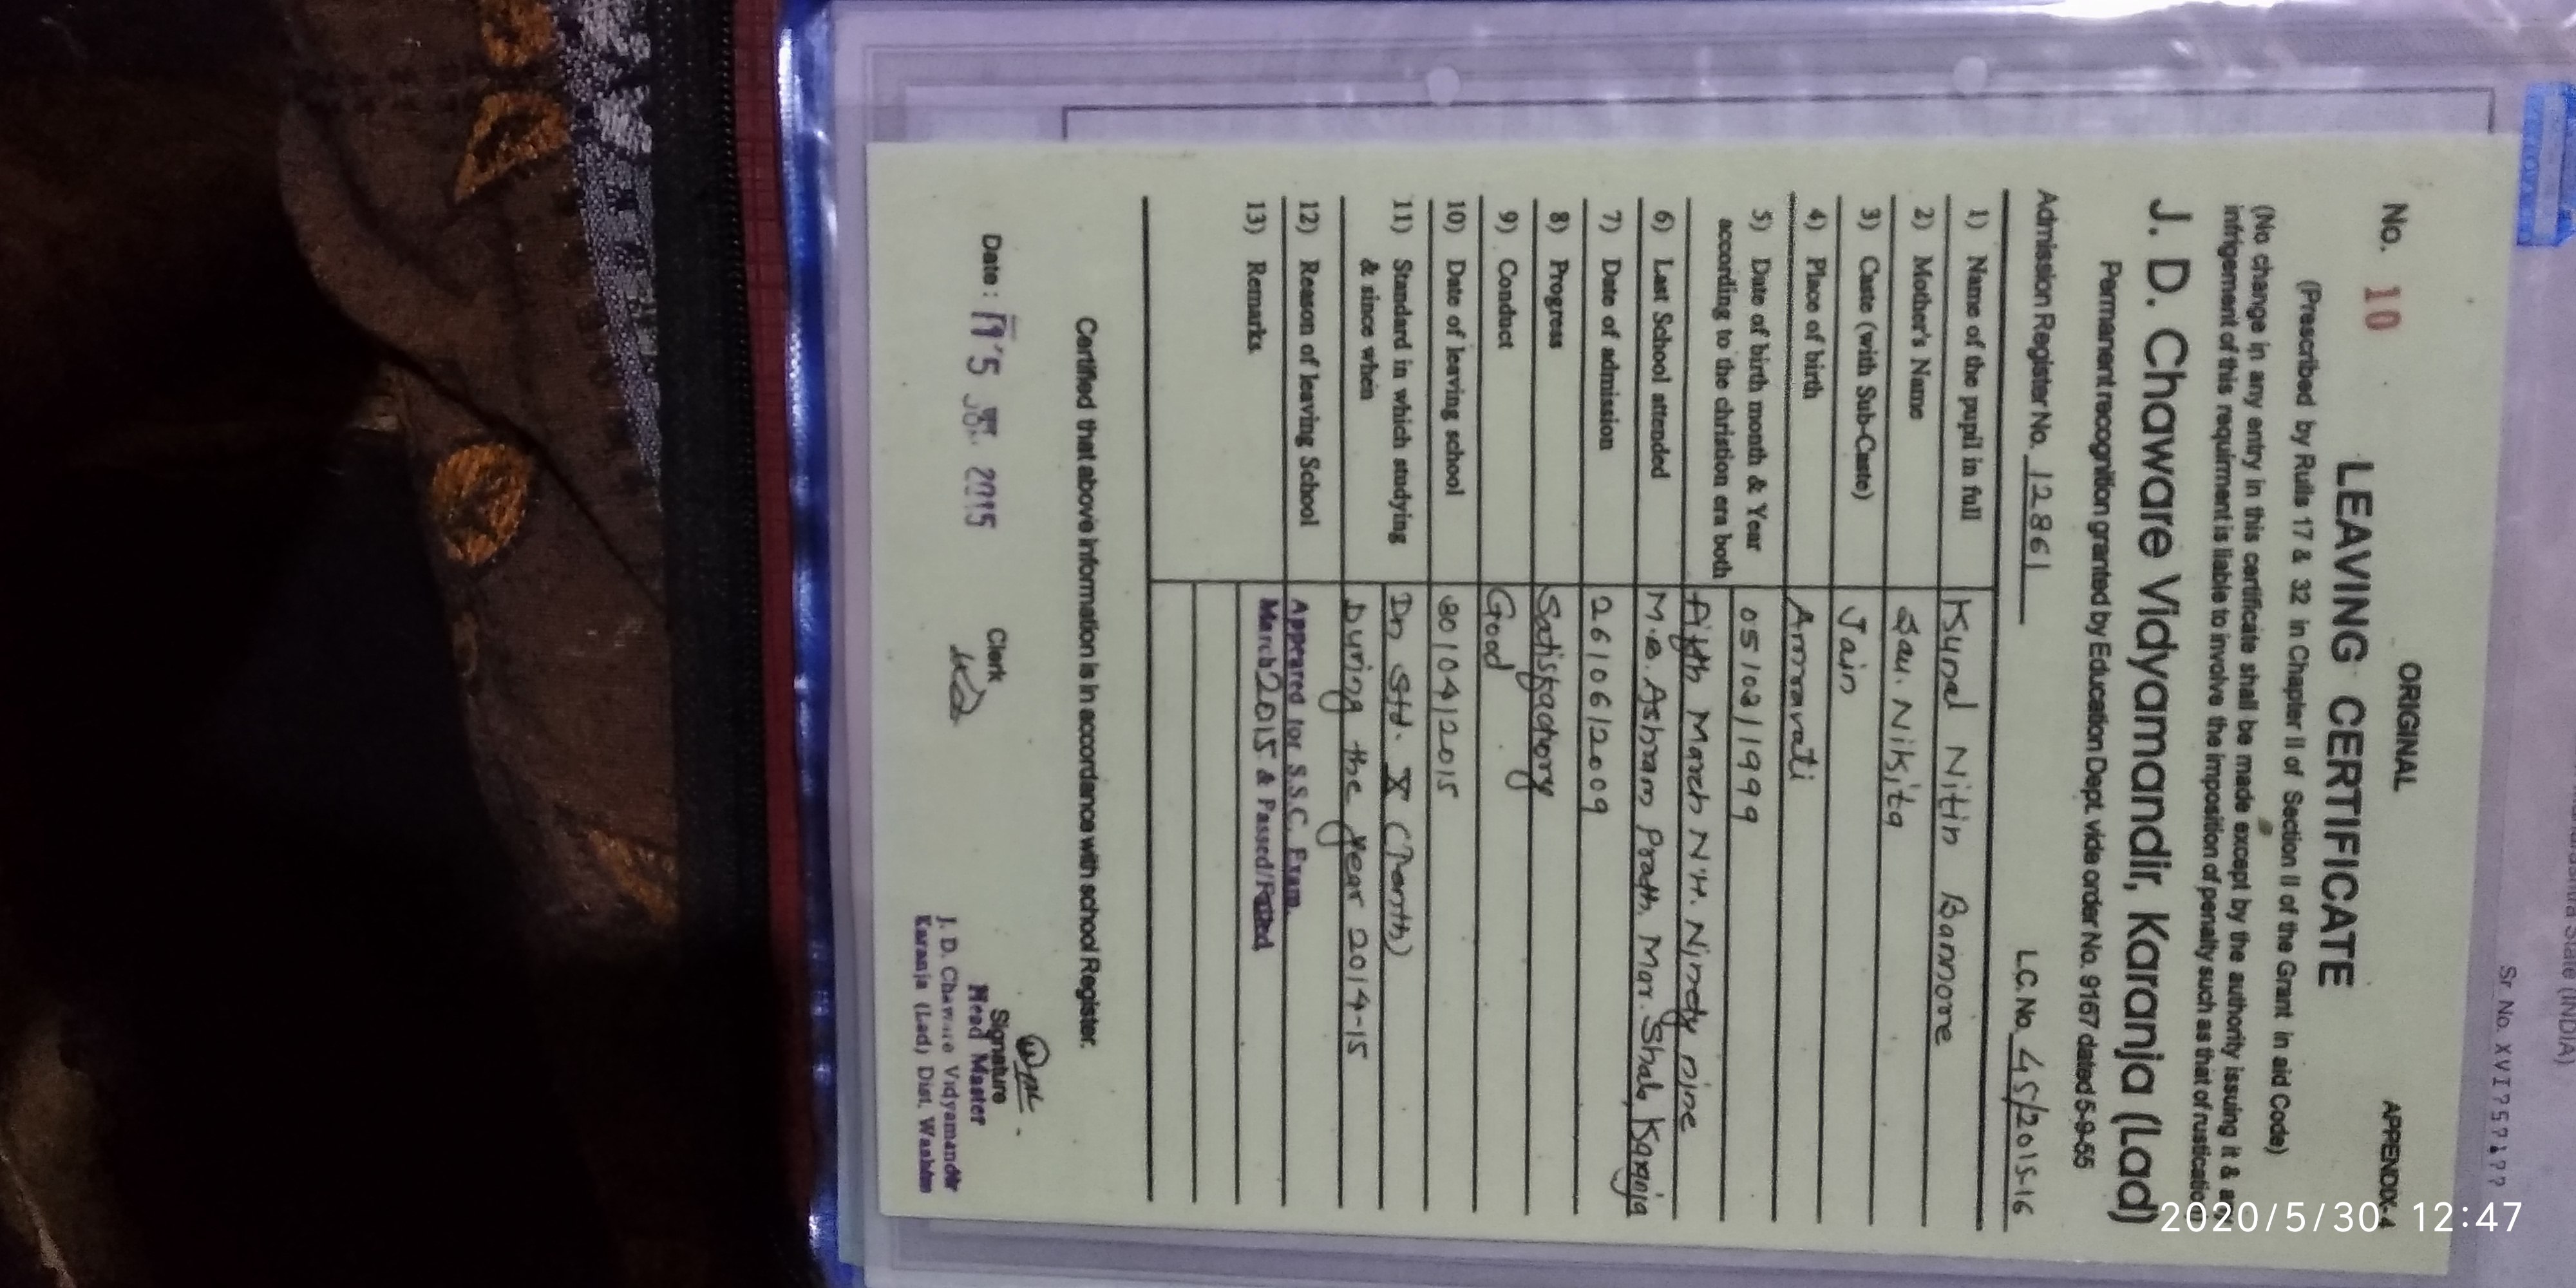 Sr No. XVI
ORIGINAL
APPENDIX-4
No. 10
LEAVING CERTIFICATE
(Prescribed by Rulls 17 & 32 in Chapter II of Section II of the Grant in aid Code)
(No change in any entry in this certificate shall be made except by the authority issuing it &
infrigement of this requirment is liable to involve the imposition of penalty such as that of rustication
J. D. Chaware Vidyamandir, Karanja (Lad)
Permanent recognition granted by Education Dept. vide order No. 9167 dated 5-9-55
Admission Register No. 12861 L.C. No. 45/2015-16
1) Name of the pupil in full Kunal Nitin Bannore
2) Mother's Name Sau. Nikita
3) Caste (with Sub-Caste) Jain
4) Place of birth Amravati
5) Date of birth month & Year 05/03/1999
according to the christion era both Fifth March N.H. Ninety nine
6) Last School attended M.B. Ashram Prath. Mar. Shala, Karanja
7) Date of admission 26/06/2009
8) Progress Satisfactory
9) Conduct Good
10) Date of leaving school 30/04/2015
11) Standard in which studying In Std. X (Tenth)
& since when During the year 2014-15
12) Reason of leaving School Appeared for S.S.C. Exam.
13) Remarks March 2015 & Passed/Failed
Certified that above information is in accordance with school Register.
Date: 2015
Clerk
Signature
Head Master
J. D. Chaware Vidyamandir
Karanja (Lad) Dist. Washim
2020/5/30 12:47